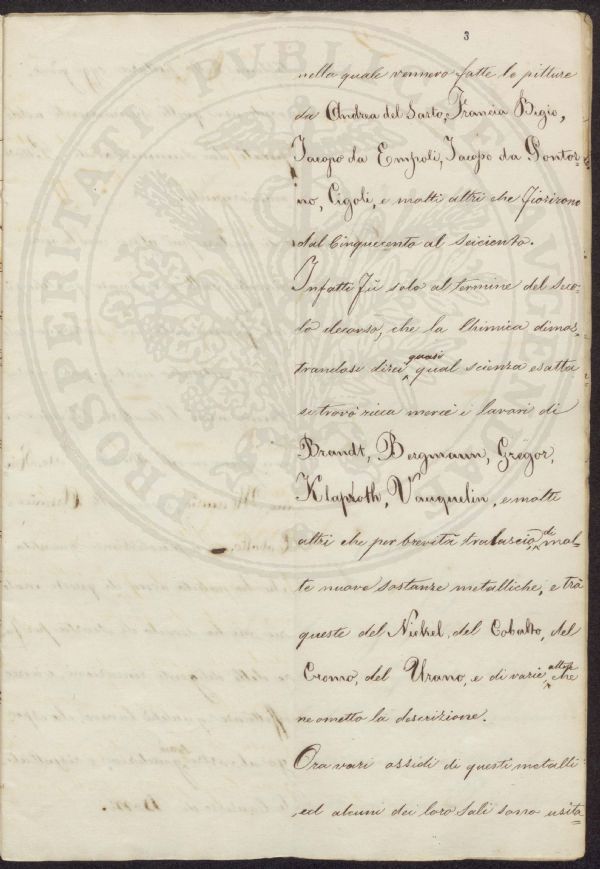 3
nella quale vennero fatte le pitture
da Andrea del Sarto, Francia Bigio,
Jacopo da Empoli, Jacopo da Pontor=
no, Cigoli, e molti altri che fiorirono
dal Cinquecento al Seicento.
Infatti fù solo al termine del Seco=
lo decorso, che la Chimica dimos=
quasi
trandosi direi qual scienza esatta
si trovò ricca mercè i lavori di
Brandt, Bergmann, Gregor,
Klaproth, Vauquelin, e molti
di
altri che per brevità tralascio, mol=
te nuove sostanze metalliche, e trà
queste del Nichel, del Cobalto, del
altre
Cromo, del Urano, e di varie, che
ne ometto la descrizione.
Ora vari ossidi di questi metalli
ed alcuni dei loro Sali sono usita
PROSPERITATI PUBLICAE